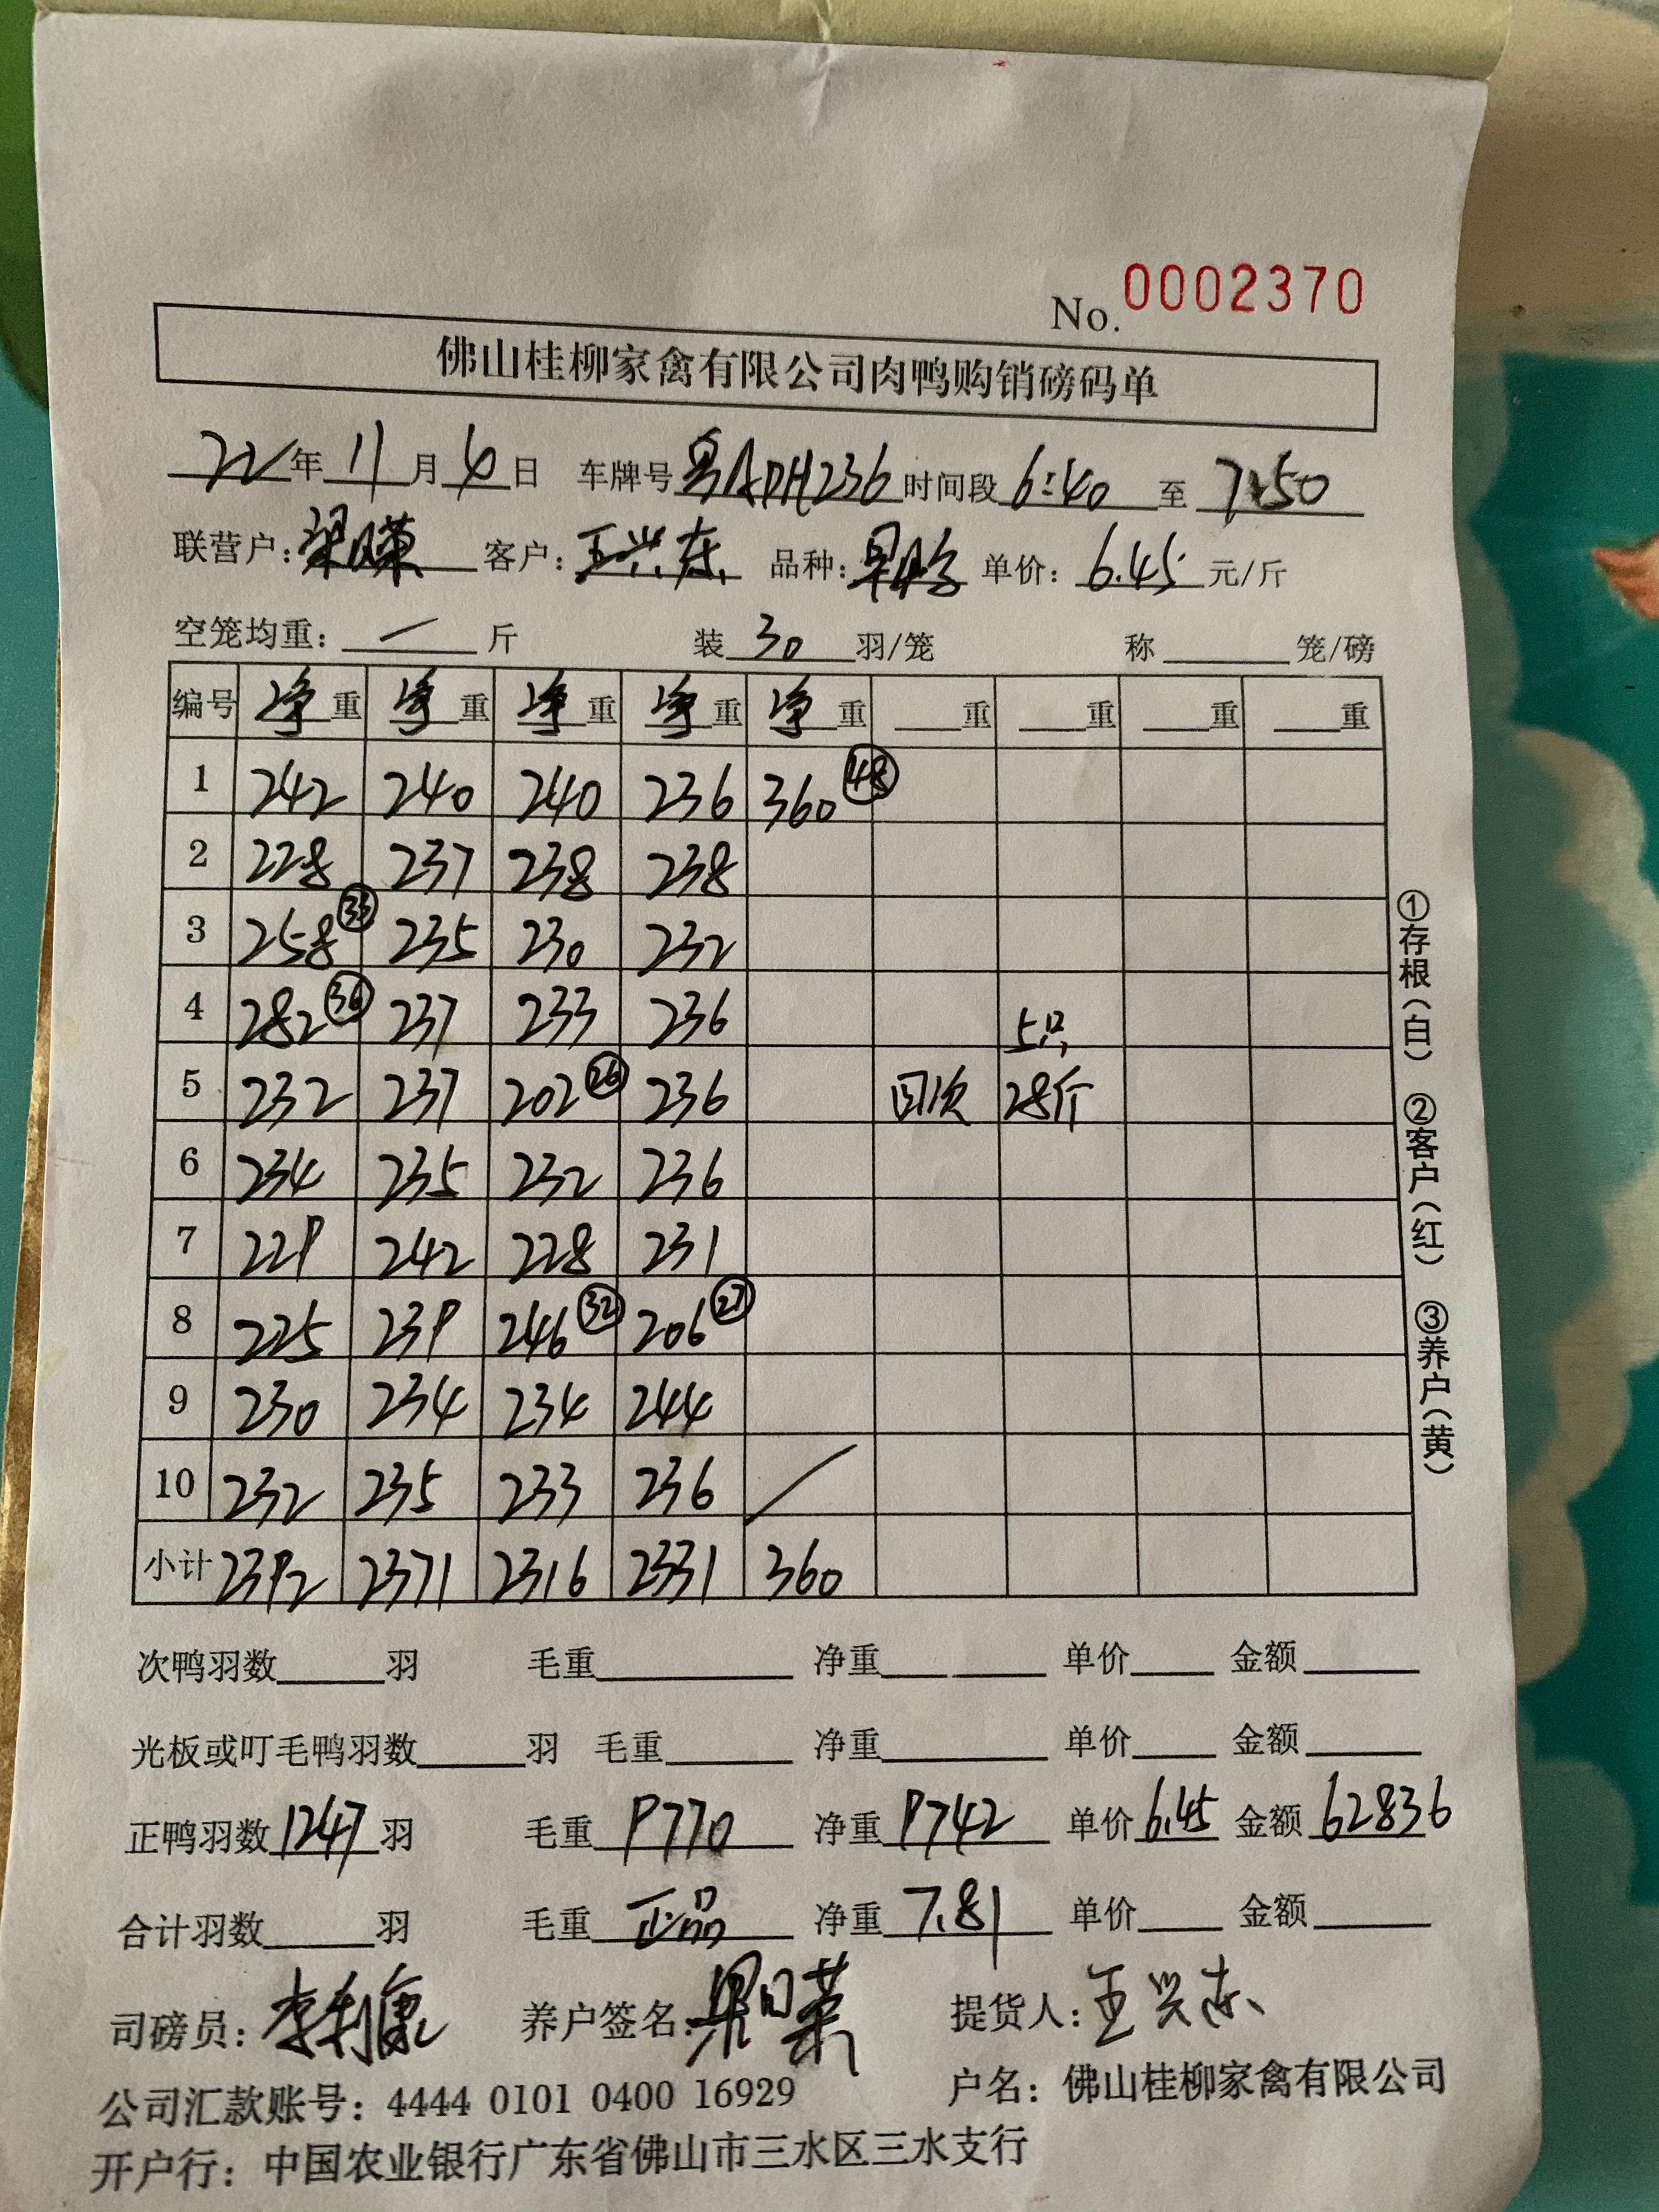 No. 0002370
佛山桂柳家禽有限公司肉鸭购销磅码单
22年11月6日 车牌号粤ADH236时间段6:40至7:50
联营户: 客户:王兴东 品种: 单价:6.45元/斤
空笼均重:一斤 装30羽/笼 称 笼/磅
编号 净重 净重 净重 净重 净重 重 重 重 重
1 242 240 240 236 360 48
2 228 237 238 238
3 258 33 235 230 232
4 282 36 237 233 236 5只
5 232 237 202 26 236 回次 28斤
6 234 235 232 236
7 229 242 228 231
8 225 239 246 32 206 27
9 230 234 234 244
10 232 235 233 236
小计 2392 2371 2316 2331 360
①存根(白) ②客户(红) ③养户(黄)
次鸭羽数 羽 毛重 净重 单价 金额
光板或叮毛鸭羽数 羽 毛重 净重 单价 金额
正鸭羽数1247羽 毛重9770 净重9742 单价6.45 金额62836
合计羽数 羽 毛重正品 净重7.81 单价 金额
司磅员:李利康 养户签名: 提货人:王兴东
公司汇款账号:4444 0101 0400 16929 户名:佛山桂柳家禽有限公司
开户行:中国农业银行广东省佛山市三水区三水支行